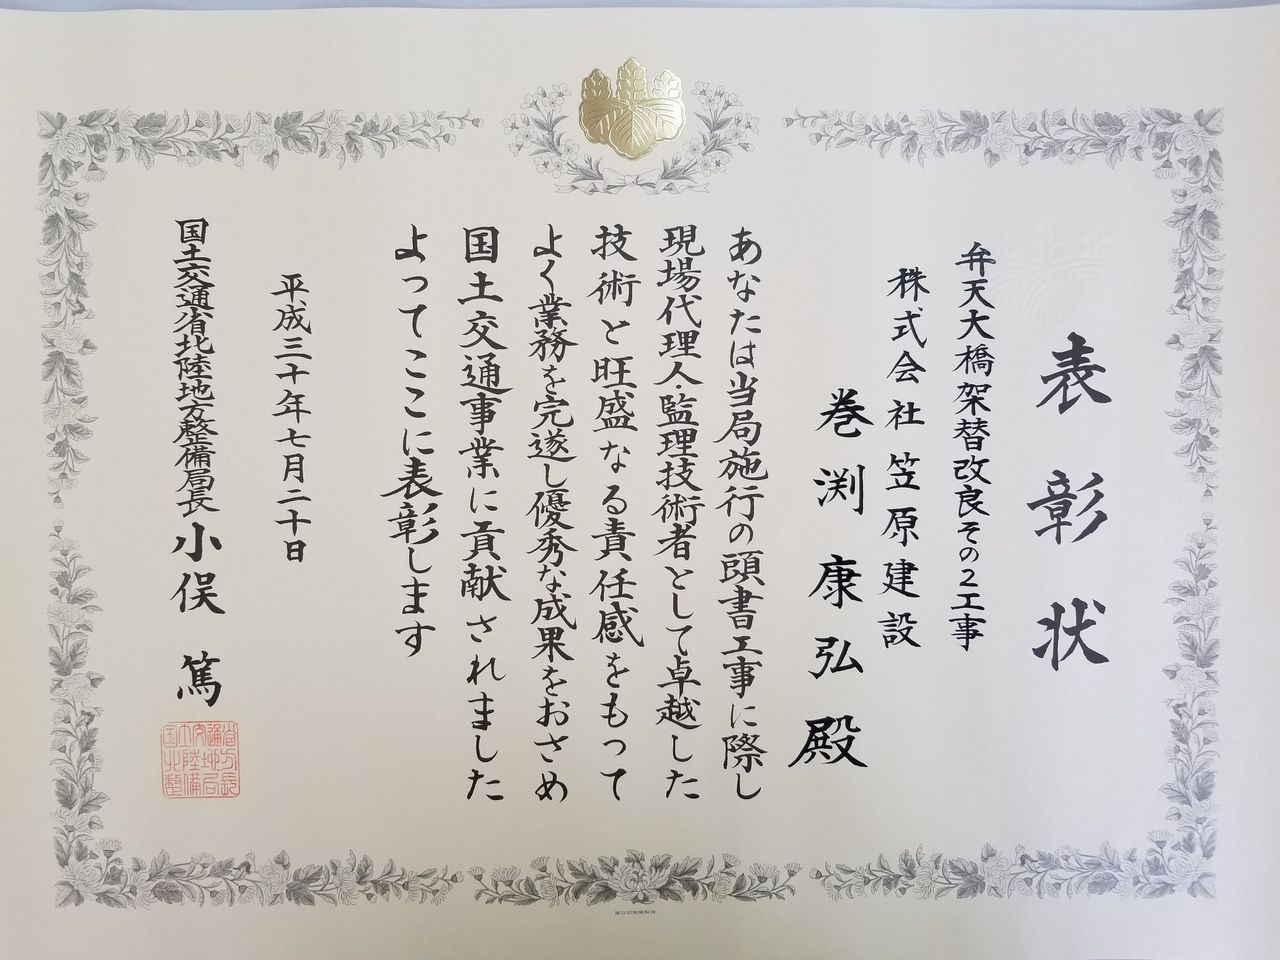 表彰状
弁天大橋架替改良その2工事
株式会社笠原建設
巻渕康弘殿
あなたは当局施行の頭書工事に際し
現場代理人・監理技術者として卓越した
技術と旺盛なる責任感をもって
よく業務を完遂し優秀な成果をおさめ
国土交通事業に貢献されました
よってここに表彰します
平成三十年七月二十日
国土交通省北陸地方整備局長 小俣 篤